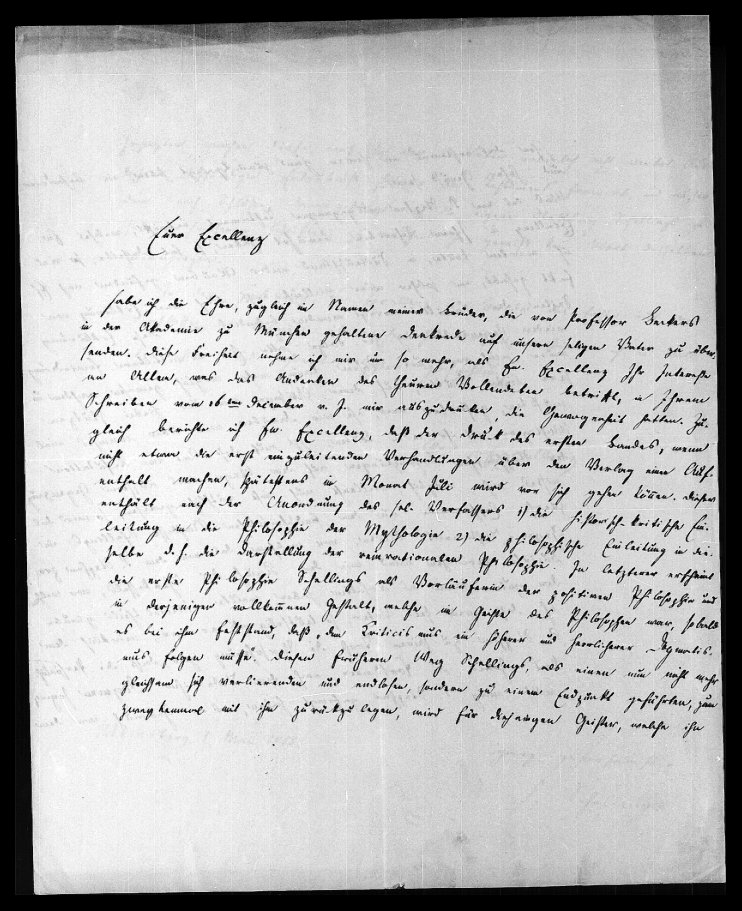 Euer Excellenz
habe ich die Ehre, zugleich im Namen meiner Brüder, die von Professor Beckers
in der Akademie zu München gehaltene Denkrede auf unsern seligen Vater zu über-
senden. Diese Freiheit nehme ich mir um so mehr, als Ew. Excellenz Ihr Interesse
an Allem, was das Andenken des theuren Vollendeten betrifft, in Ihrem
Schreiben vom 16ten December v. J. mir auszudrücken, die Gewogenheit hatten. Zu-
gleich berichte ich Ew. Excellenz, daß der Druck des ersten Bandes, wenn
nicht etwa die erst einzuleitenden Verhandlungen über den Verlag einen Auf-
enthalt machen, spätestens im Monat Juli wird vor sich gehen können. Dieser
enthält nach der Anordnung des sel. Verfassers 1) die historisch-kritische Ein-
leitung in die Philosophie der Mythologie 2) die philosophische Einleitung in die-
selbe d. h. die Darstellung der reinrationalen Philosophie. In letzterer erscheint
die erste Philosophie Schellings als Vorläuferin der positiven Philosophie und
in derjenigen vollkommenen Gestalt, welche im Geiste des Philosophen war, sobald
es bei ihm feststand, daß „dem Kriticismus ein höherer und herrlicherer Dogmatis-
mus folgen müsse. Diesen frühern Weg Schellings, als einen nun nicht mehr
gleichsam sich verlierenden und endlosen, sondern zu einem Endpunkt geführten, zum
zweytenmal mit ihm zurükzulegen, wird für diejenigen Geister, welche ihn